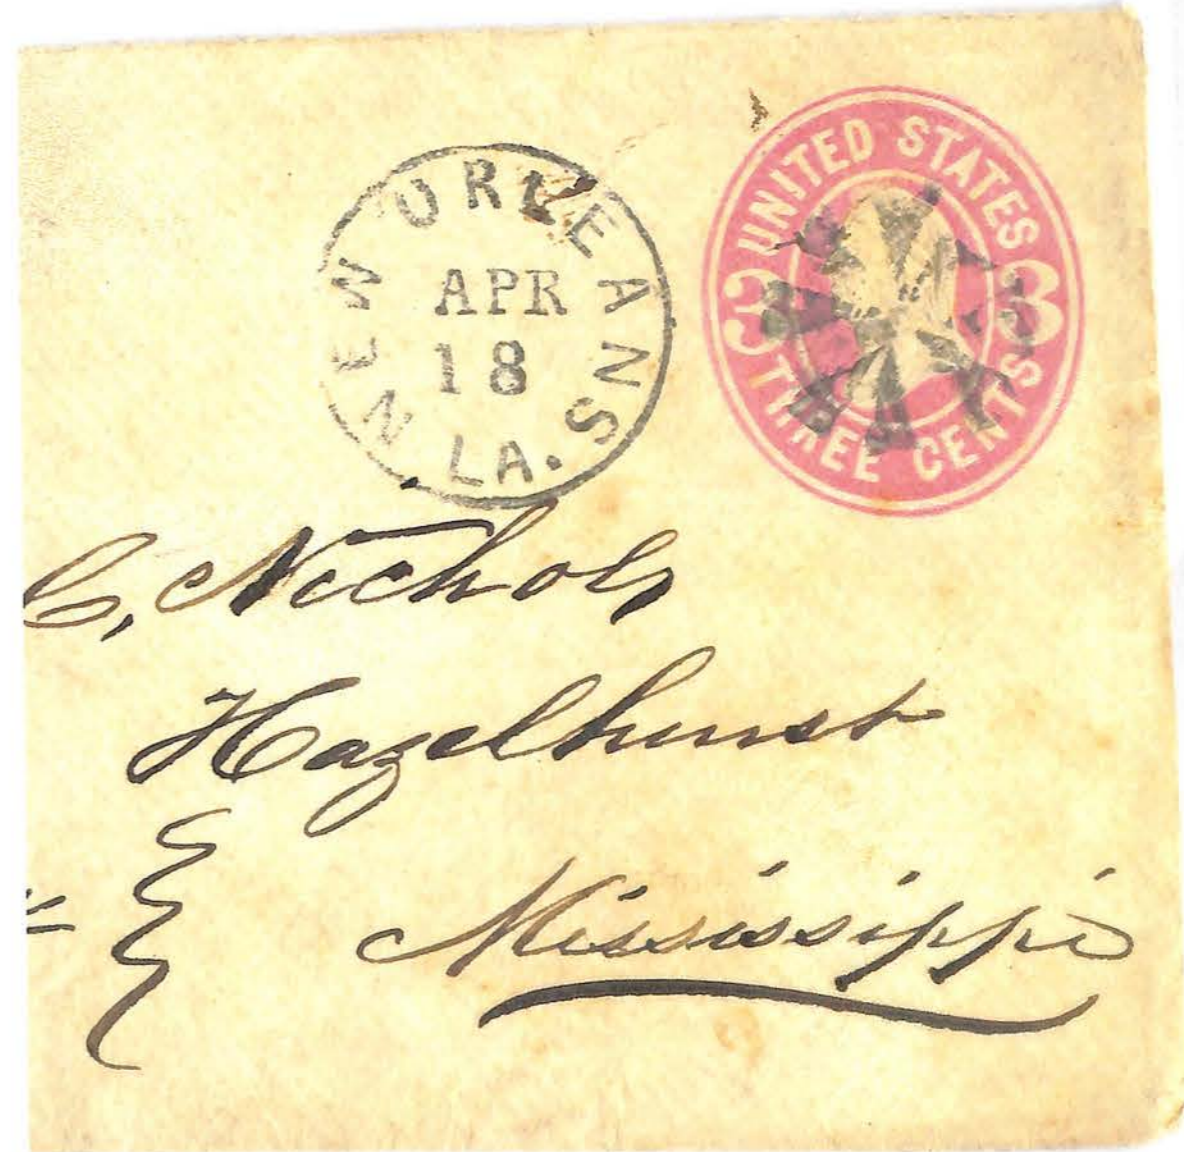 NEW ORLEANS
APR
18
LA.
UNITED STATES
3 3
THREE CENTS
C, Nichols
Hazelhurst
Mississippi